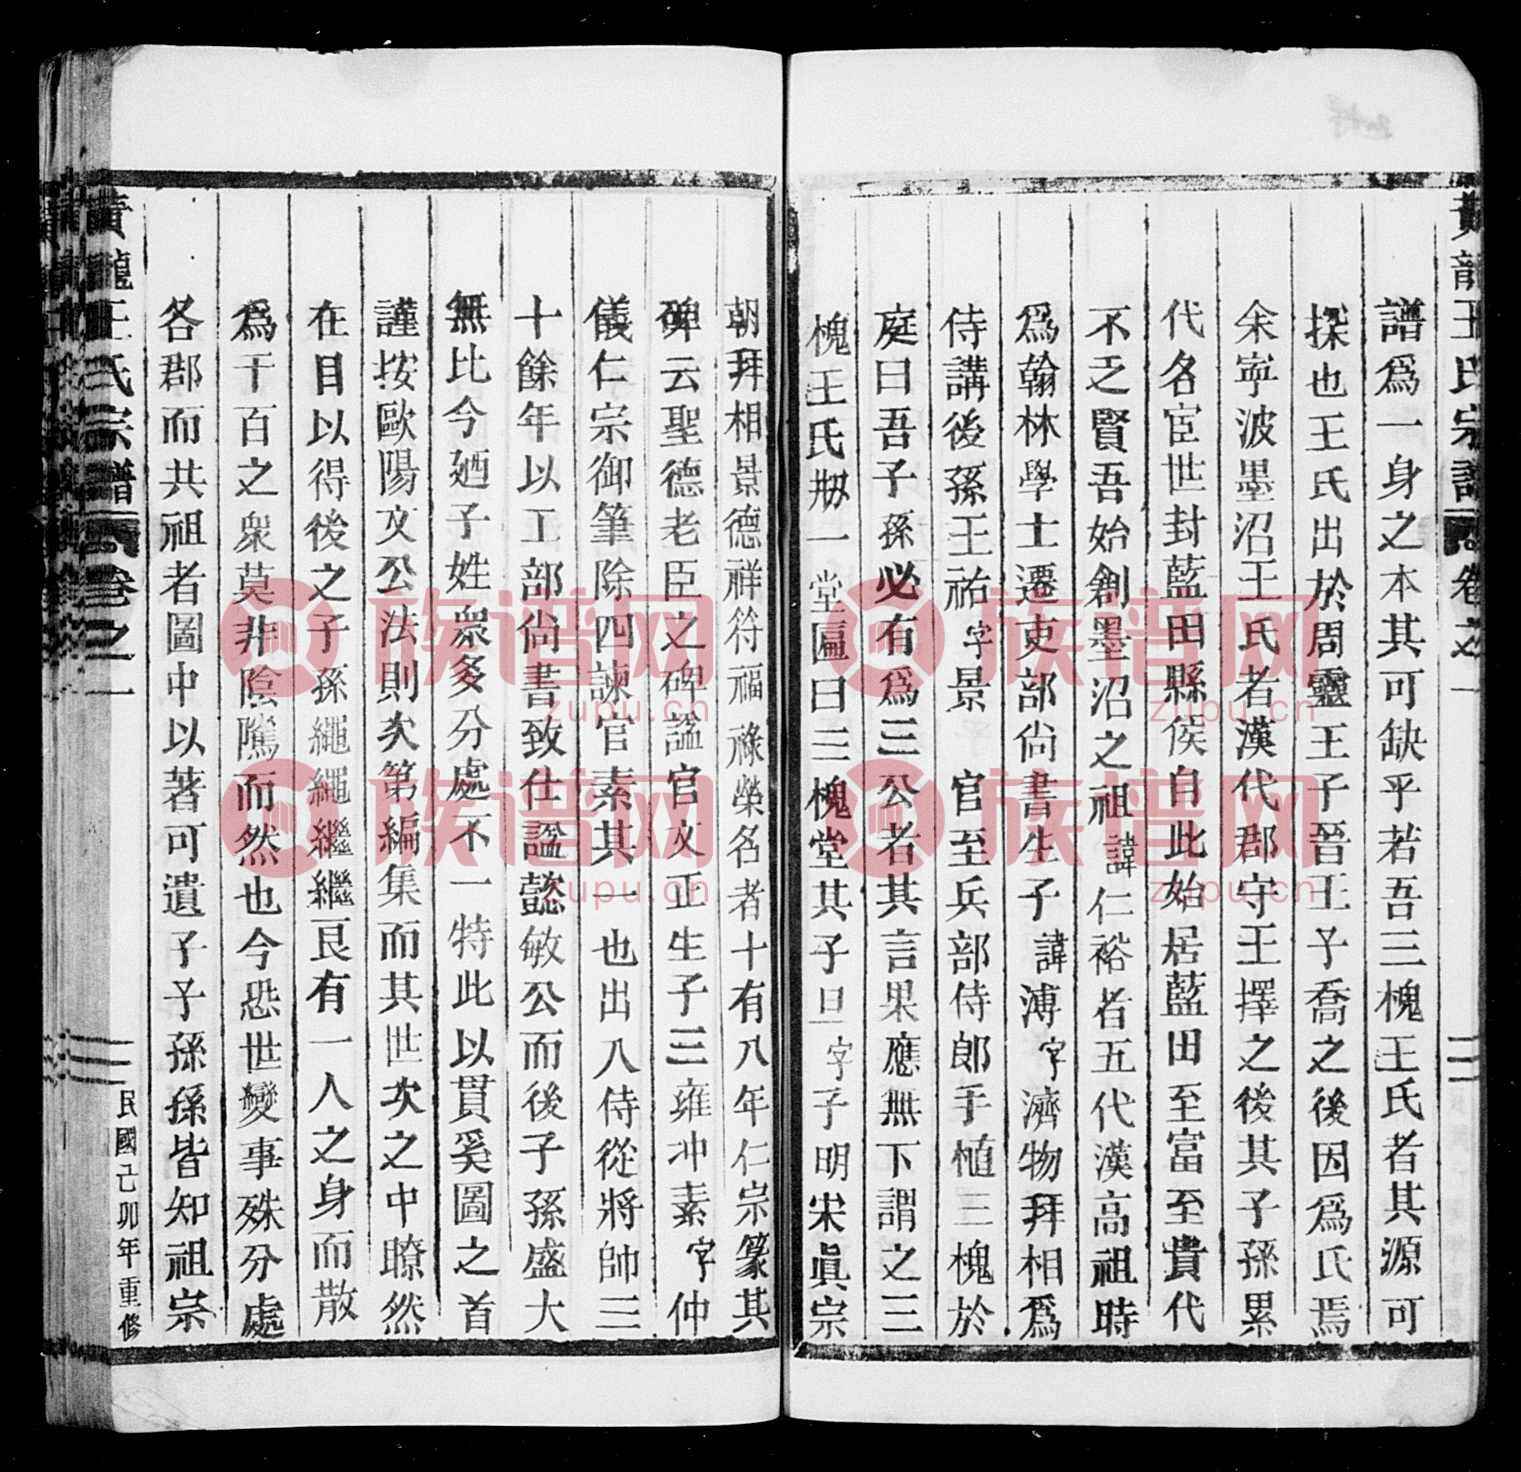 黃龍王氏宗譜 卷之一
譜爲一身之本其可缺乎若吾三槐王氏者其源可
探也王氏出於周靈王子晉王子喬之後因爲氏焉
余寧波墨沼王氏者漢代郡守王擇之後其子孫累
代各宦世封藍田縣侯自此始居藍田至富至貴代
不乏賢吾始創墨沼之祖諱仁裕者五代漢高祖時
爲翰林學士遷吏部尙書生子諱溥字濟物拜相爲
侍講後孫王祐字景 官至兵部侍郎手植三槐於
庭曰吾子孫必有爲三公者其言果應無下謂之三
槐王氏剏一堂匾曰三槐堂其子旦一字子明宋眞宗
朝拜相景德祥符福祿榮名者十有八年仁宗篆其
碑云聖德老臣之碑謚官文正生子三雍冲素字仲
儀仁宗御筆除四諫官素其一也出入侍從將帥三
十餘年以工部尙書致仕謚懿敏公而後子孫盛大
無比今廼子姓衆多分處不一特此以貫奚圖之首
謹按歐陽文公法則次第編集而其世次之中瞭然
在目以得後之子孫繩繩繼繼艮有一人之身而散
爲千百之衆莫非陰隲而然也今恐世變事殊分處
各郡而共祖者圖中以著可遺子子孫孫皆知祖宗
黃龍王氏宗譜 卷之一 民國己卯年重修
族谱网
zupu.cn
族谱网
zupu.cn
族谱网
zupu.cn
族谱网
zupu.cn